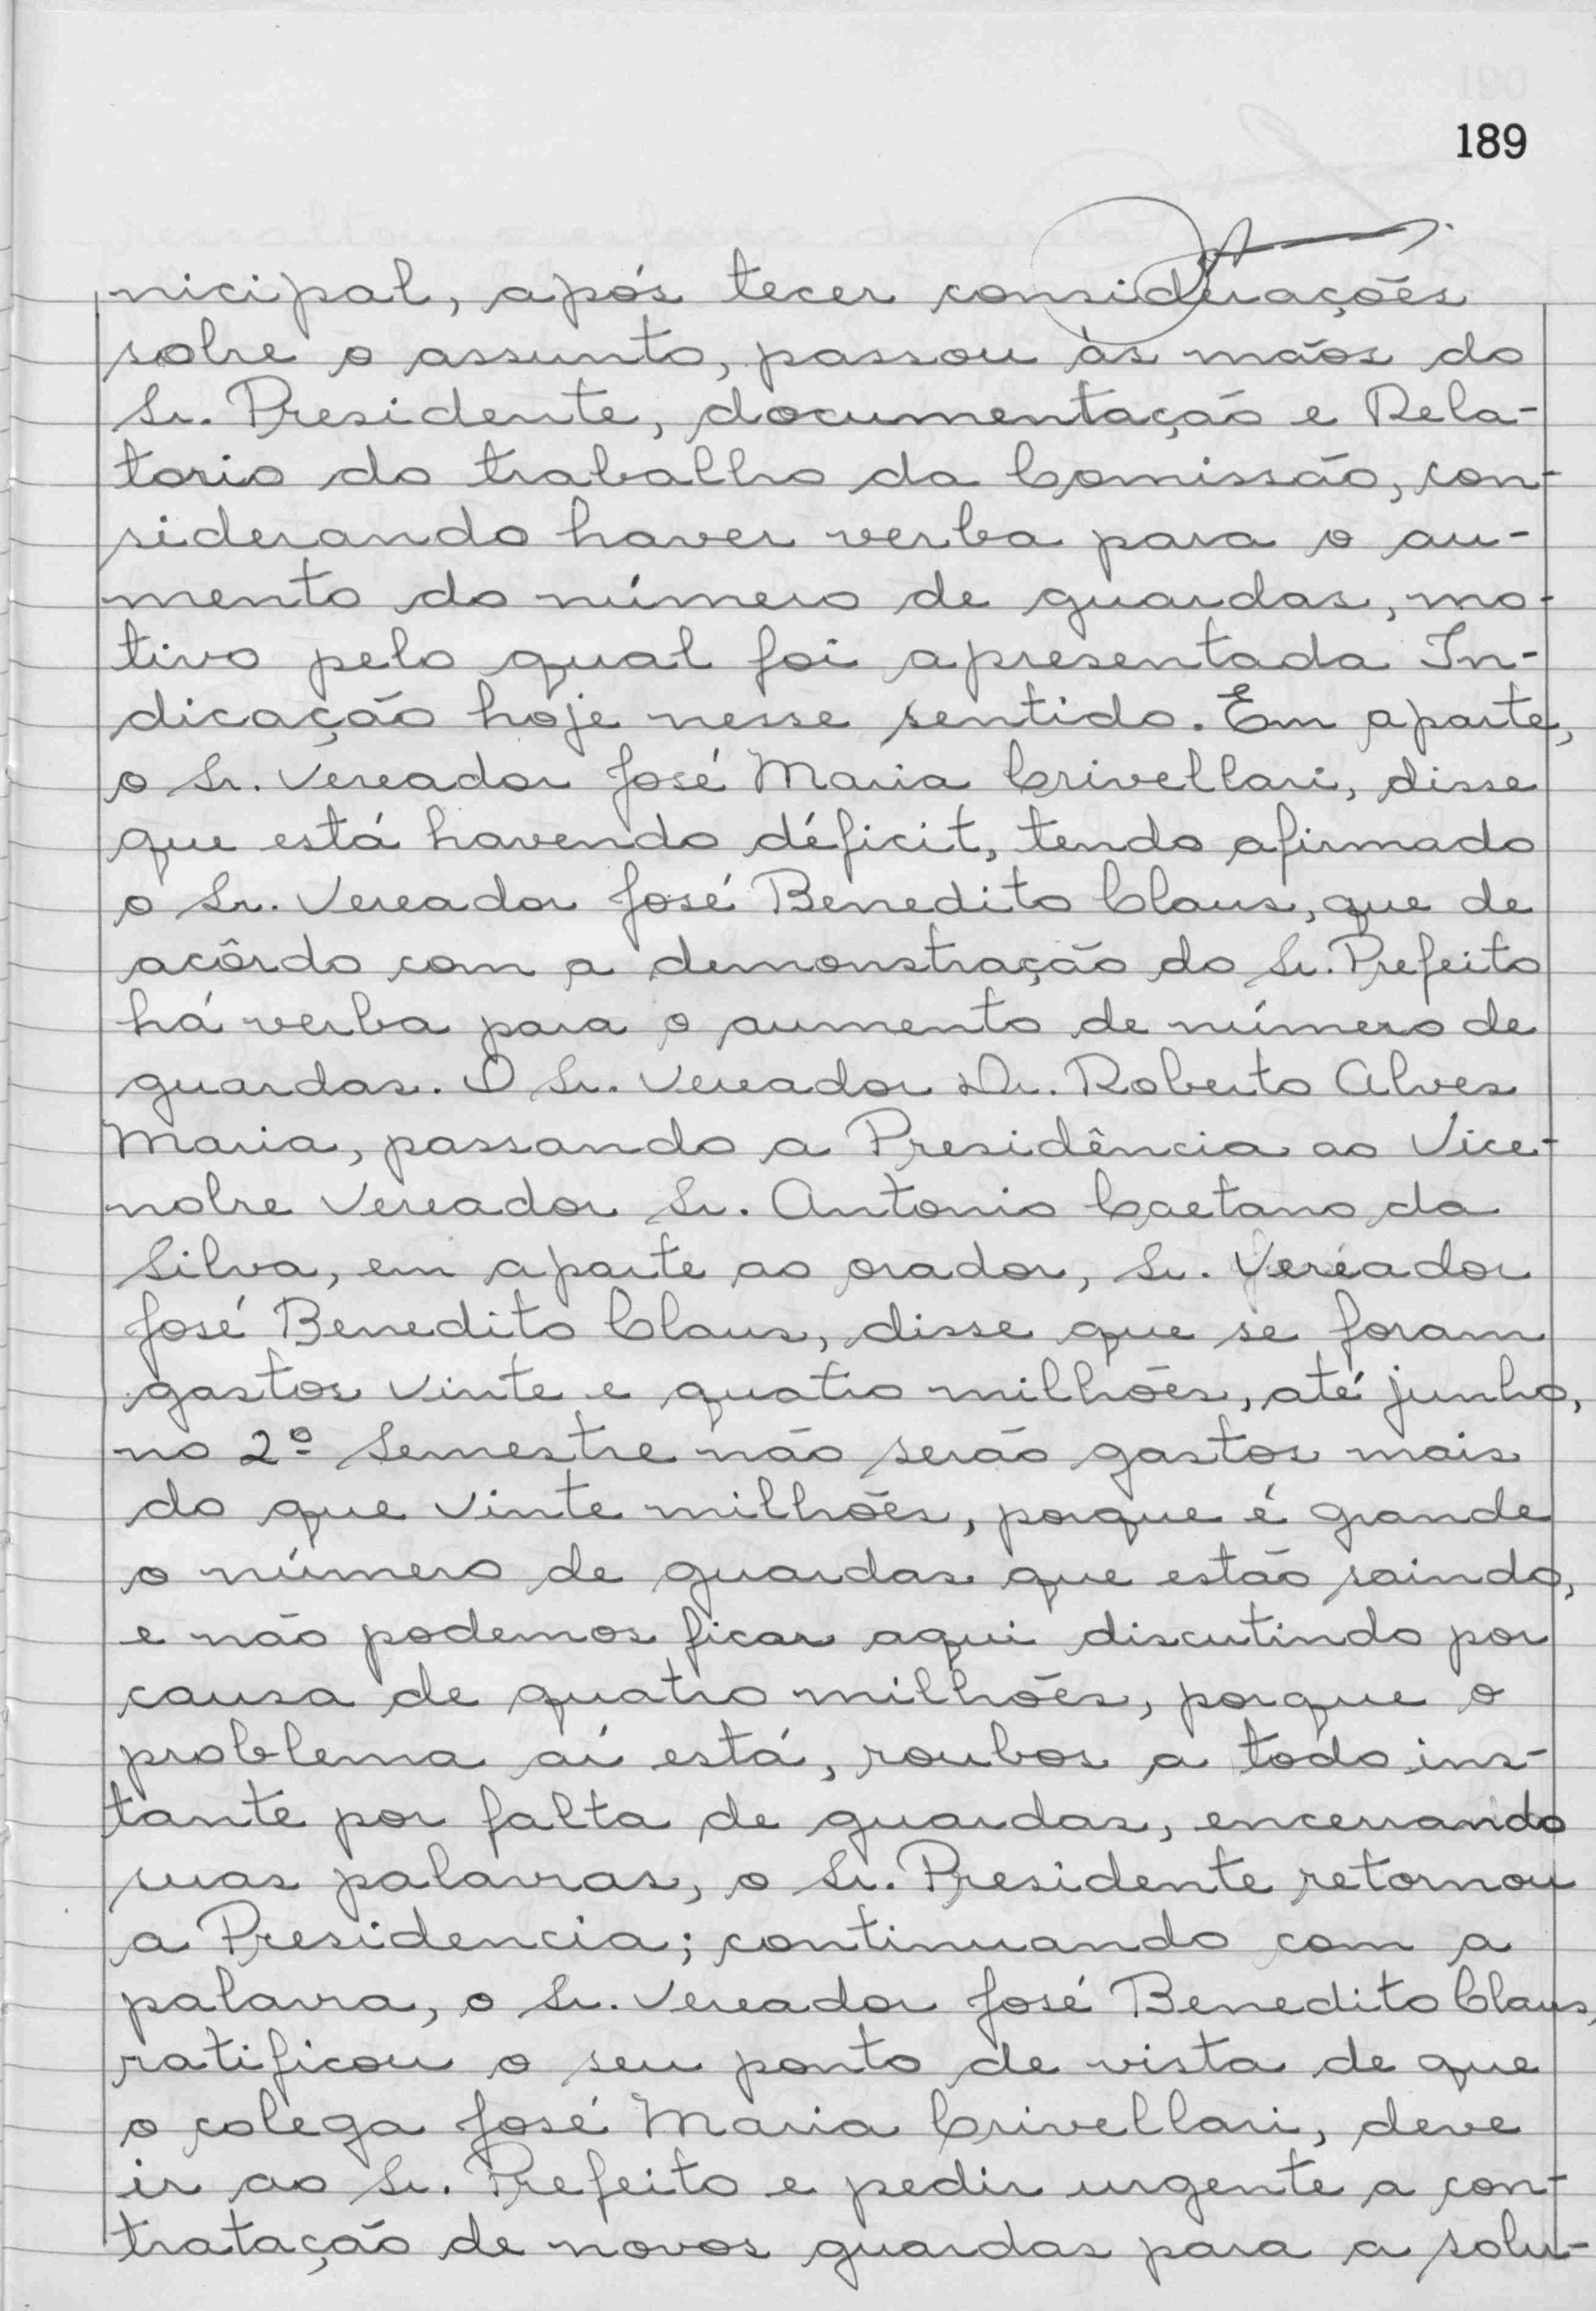 189
nicipal, após tecer considerações
sobre o assunto, passou às mãos do
Sr. Presidente, documentação e Rela-
torio do trabalho da Comissão, con-
siderando haver verba para o au-
mento do número de guardas, mo-
tivo pelo qual foi apresentada In-
dicação hoje nesse sentido. Em aparte,
o Sr. Vereador José Maria Crivellari, disse
que está havendo déficit, tendo afirmado
o Sr. Vereador José Benedito Claus, que de
acôrdo com a demonstração do Sr. Prefeito
há verba para o aumento de número de
guardas. O Sr. Vereador Dr. Roberto Alves
Maria, passando a Presidência ao Vice-
nobre Vereador Sr. Antonio Caetano da
Silva, em aparte ao orador, Sr. Vereador
José Benedito Claus, disse que se foram
gastos vinte e quatro milhões, até junho,
no 2º Semestre não serão gastos mais
do que vinte milhões, porque é grande
o número de guardas que estão saindo,
e não podemos ficar aqui discutindo por
causa de quatro milhões, porque o
problema aí está, roubos a todo ins-
tante por falta de guardas, encerrando
suas palavras, o Sr. Presidente retornou
a Presidencia; continuando com a
palavra, o Sr. Vereador José Benedito Claus,
ratificou o seu ponto de vista de que
o colega José Maria Crivellari, deve
ir ao Sr. Prefeito e pedir urgente a con-
tratação de novos guardas para a solu-